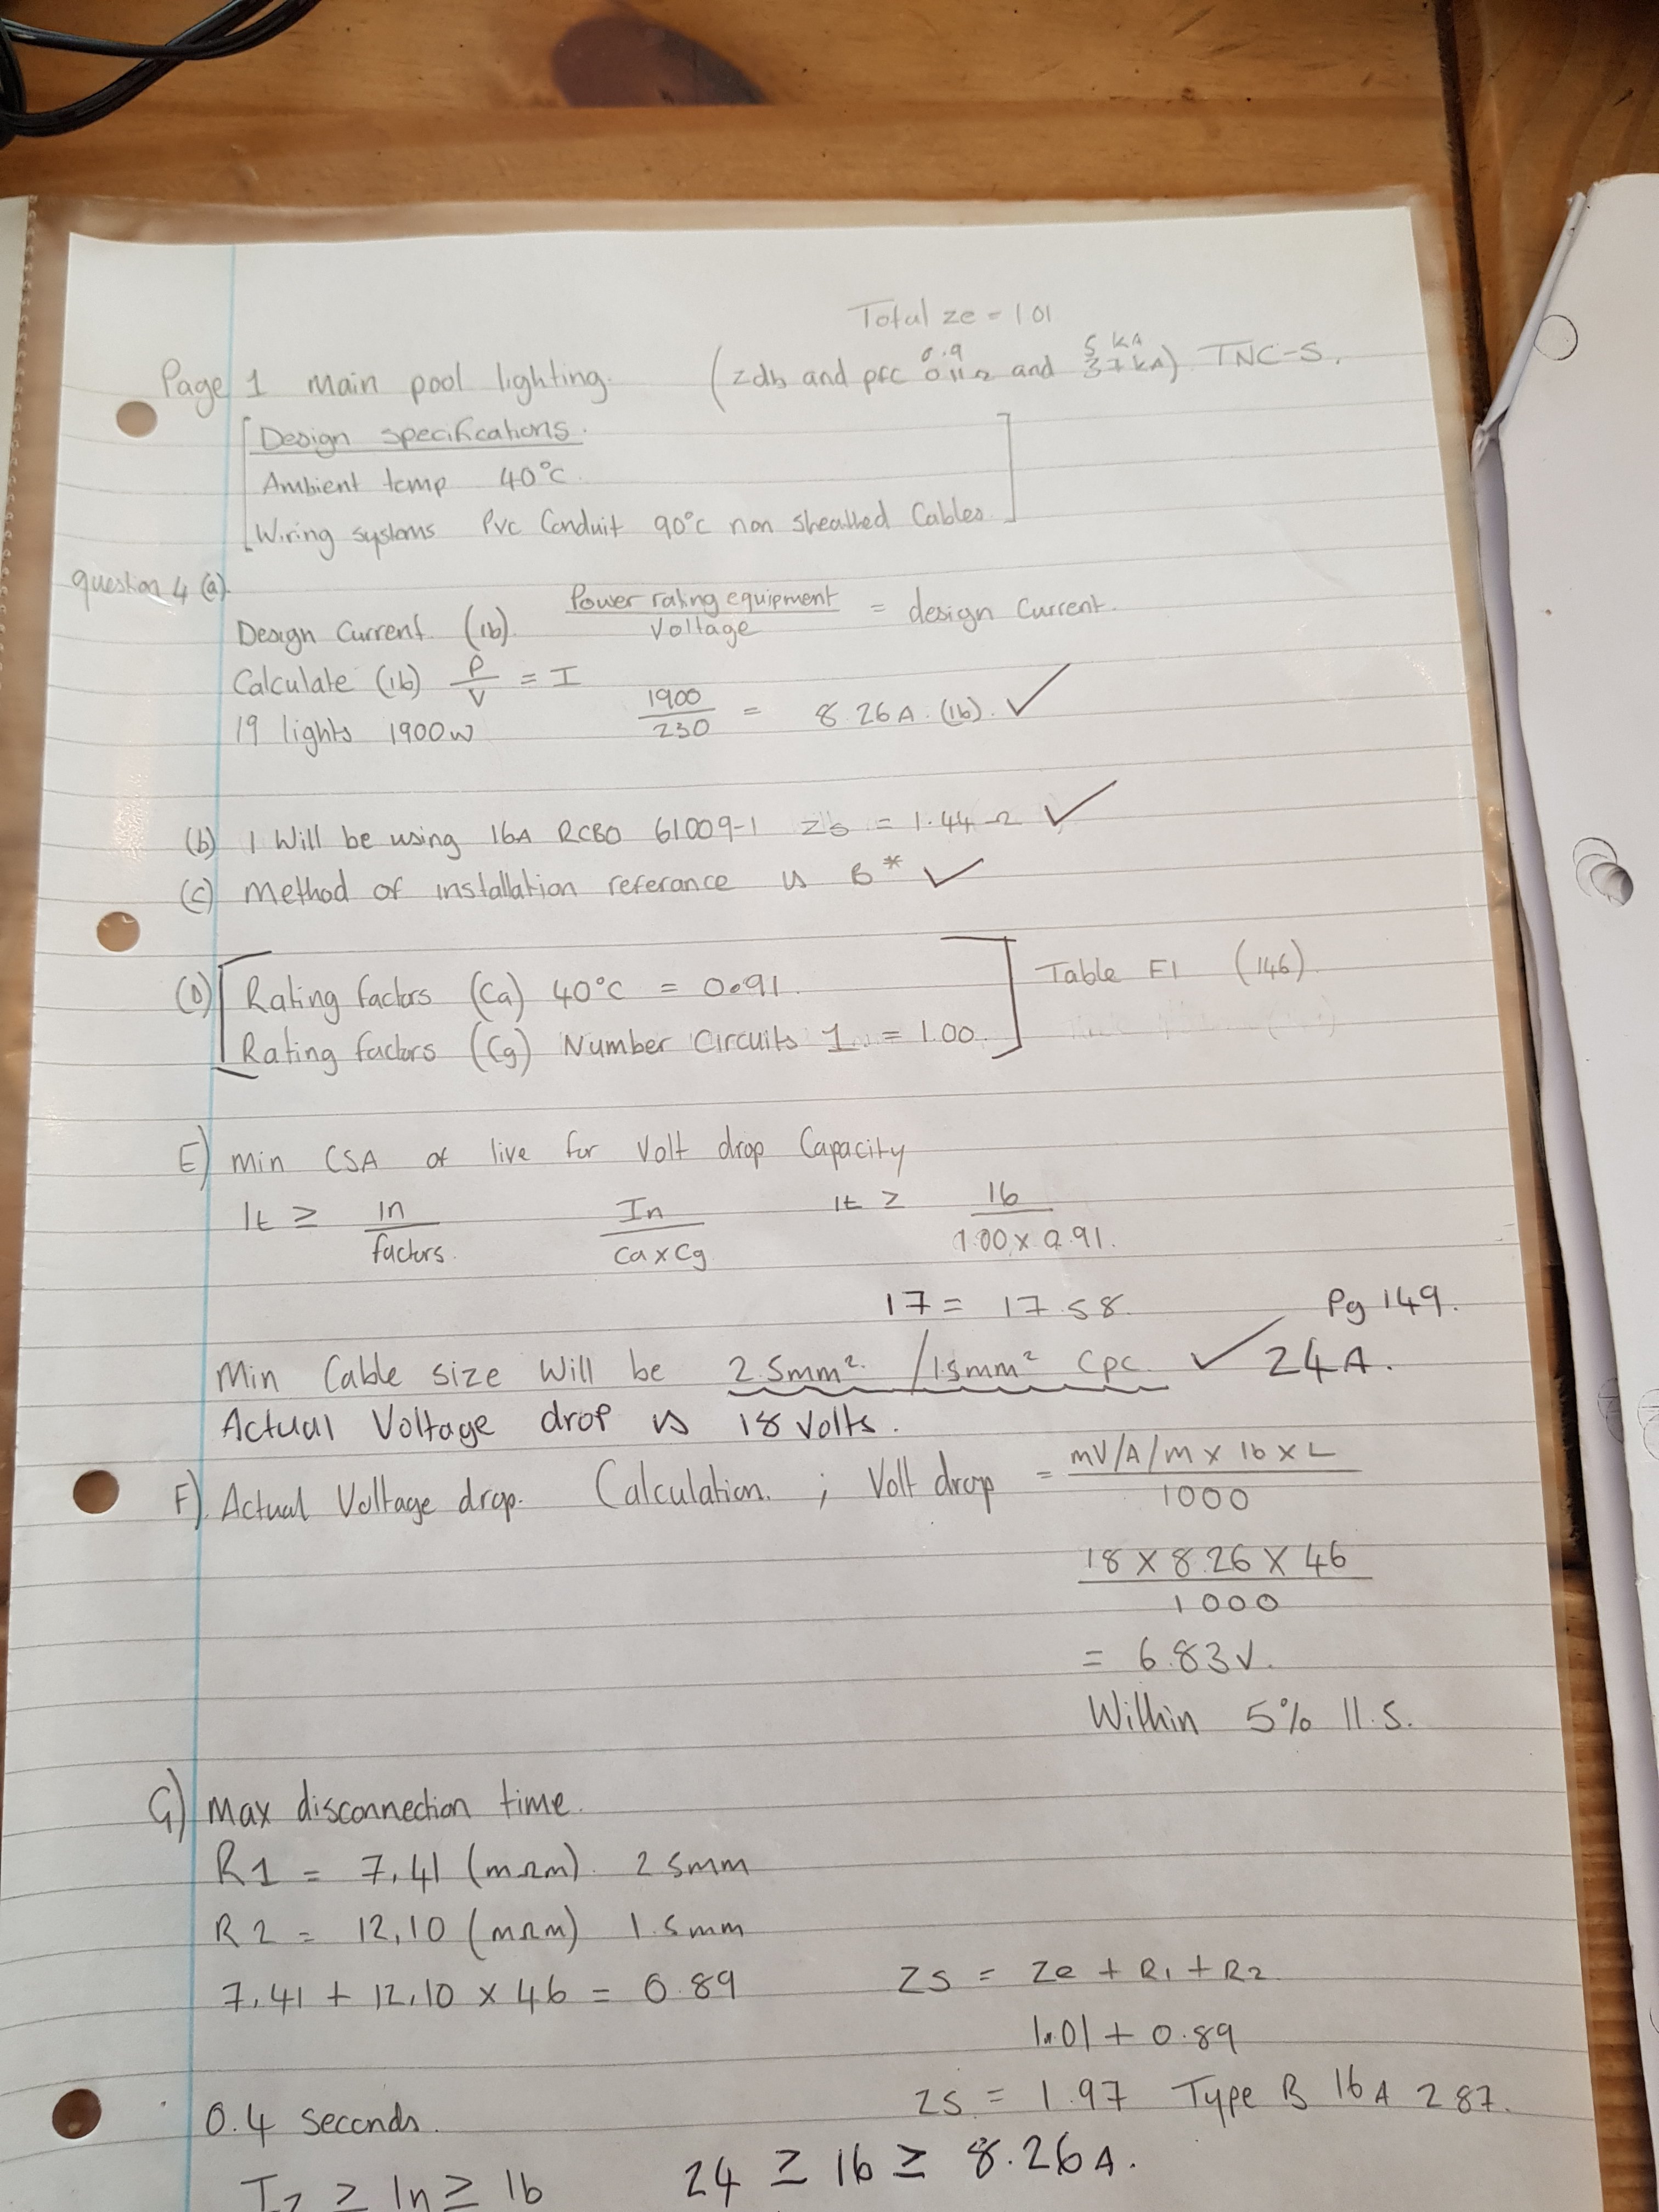 Total ze = 1.01
Page 1 main pool lighting. (zdb and pfc 0.11Ω and 37kA) TNC-S.
0.9 5 kA
Design specifications.
Ambient temp 40°C.
Wiring systems Pvc Conduit 90°C non sheathed Cables
question 4 (a).
Design Current (Ib). Power rating equipment / Voltage = design Current.
Calculate (Ib) P/V = I
19 lights 1900w 1900/230 = 8.26A. (Ib). ✓
(b) I Will be using 16A RCBO 61009-1 Zs = 1.44Ω ✓
(c) Method of installation referance is B* ✓
(D) Rating factors (Ca) 40°C = 0.91. Table F1 (146)
Rating factors (Cg) Number Circuits 1 = 1.00.
E) Min CSA of live for Volt drop Capacity
It ≥ In/factors. In/Ca x Cg It ≥ 16/1.00 x 0.91.
17 = 17.58. Pg 149.
Min Cable size Will be 2.5mm² / 1.5mm² Cpc. ✓ 24A.
Actual Voltage drop is 18 Volts.
F). Actual Voltage drop. Calculation. ; Volt drop = mV/A/m x Ib x L / 1000
18 x 8.26 x 46 / 1000
= 6.83V.
Within 5% 11.5.
G) Max disconnection time.
R1 = 7.41 (mΩm). 2.5mm
R2 = 12.10 (mΩm) 1.5mm
7.41 + 12.10 x 46 = 0.89 Zs = Ze + R1 + R2
1.01 + 0.89
0.4 Seconds. Zs = 1.97 Type B 16A 2.87.
Iz ≥ In ≥ Ib 24 ≥ 16 ≥ 8.26A.